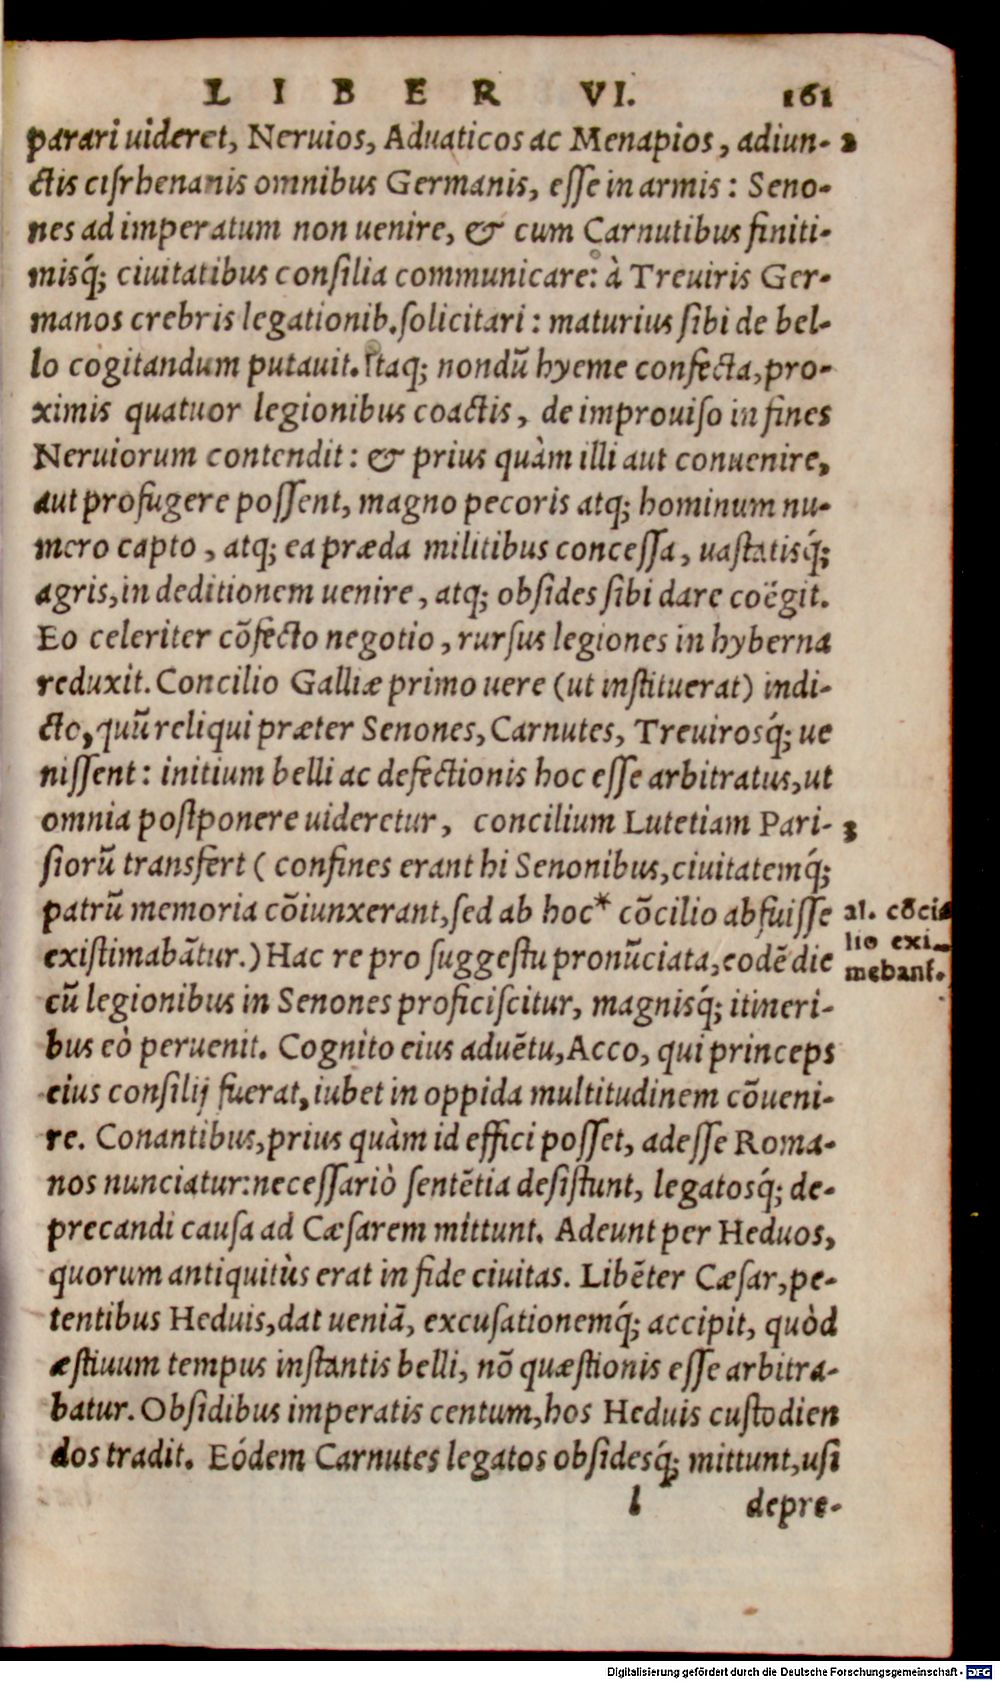 LIBER VI. 161
parari uideret, Neruios, Aduaticos ac Menapios, adiun- 2
ctis cisrhenanis omnibus Germanis, eſſe in armis: Seno-
nes ad imperatum non uenire, & cum Carnutibus finiti-
misq́; ciuitatibus conſilia communicare: à Treuiris Ger-
manos crebris legationib. ſolicitari: maturius ſibi de bel-
lo cogitandum putauit. Itaq; nondū hyeme confecta, pro-
ximis quatuor legionibus coactis, de improuiſo in fines
Neruiorum contendit: & prius quàm illi aut conuenire,
aut profugere poſſent, magno pecoris atq; hominum nu-
mero capto, atq; ea præda militibus conceſſa, uaſtatisq́;
agris, in deditionem uenire, atq; obſides ſibi dare coëgit.
Eo celeriter cōfecto negotio, rurſus legiones in hyberna
reduxit. Concilio Galliæ primo uere (ut inſtituerat) indi-
cto, quū reliqui præter Senones, Carnutes, Treuirosq́; ue
niſſent: initium belli ac defectionis hoc eſſe arbitratus, ut
omnia poſtponere uideretur, concilium Lutetiam Pari- 3
ſiorū transfert (confines erant hi Senonibus, ciuitatemq́;
patrū memoria cōiunxerant, ſed ab hoc* cōcilio abfuiſſe
existimabātur.) Hac re pro ſuggeſtu pronūciata, eodē die
cū legionibus in Senones proficiſcitur, magnisq́; itineri-
bus eò peruenit. Cognito eius aduētu, Acco, qui princeps
eius conſilij fuerat, iubet in oppida multitudinem cōueni-
re. Conantibus, prius quàm id effici poſſet, adeſſe Roma-
nos nunciatur: neceſſariò ſentētia deſiſtunt, legatosq́; de-
precandi cauſa ad Cæſarem mittunt. Adeunt per Heduos,
quorum antiquitùs erat in fide ciuitas. Libēter Cæſar, pe-
tentibus Heduis, dat ueniā, excuſationemq́; accipit, quòd
æſtiuum tempus inſtantis belli, nō quæſtionis eſſe arbitra-
batur. Obſidibus imperatis centum, hos Heduis cuſtodien
dos tradit. Eódem Carnutes legatos obſidesq́; mittunt, uſi
l depre-
al. cōci
lio exi-
mebant.
Digitalisierung gefördert durch die Deutsche Forschungsgemeinschaft - DFG